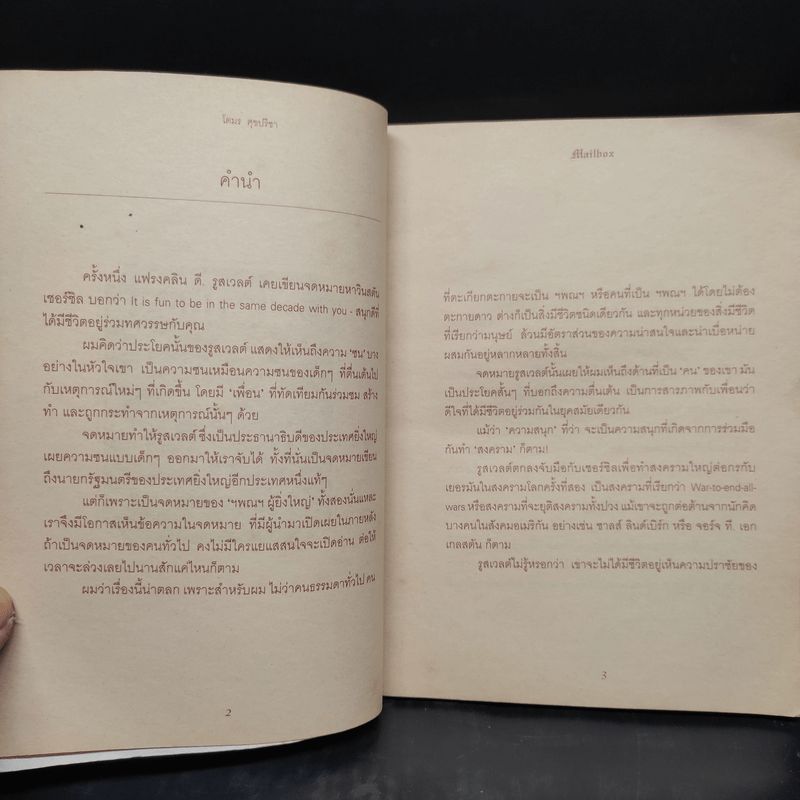 โตมร ศุขปรีชา
คำนำ
ครั้งหนึ่ง แฟรงคลิน ดี. รูสเวลต์ เคยเขียนจดหมายหาวินสตัน
เชอร์ชิล บอกว่า It is fun to be in the same decade with you - สนุกดีที่
ได้มีชีวิตอยู่ร่วมทศวรรษกับคุณ
ผมคิดว่าประโยคนั้นของรูสเวลต์ แสดงให้เห็นถึงความ 'ซน' บาง
อย่างในหัวใจเขา เป็นความซนเหมือนความซนของเด็กๆ ที่ตื่นเต้นไป
กับเหตุการณ์ใหม่ๆ ที่เกิดขึ้น โดยมี 'เพื่อน' ที่ทัดเทียมกันร่วมชม สร้าง
ทำ และถูกกระทำจากเหตุการณ์นั้นๆ ด้วย
จดหมายทำให้รูสเวลต์ ซึ่งเป็นประธานาธิบดีของประเทศยิ่งใหญ่
เผยความซนแบบเด็กๆ ออกมาให้เราจับได้ ทั้งที่นั่นเป็นจดหมายเขียน
ถึงนายกรัฐมนตรีของประเทศยิ่งใหญ่อีกประเทศหนึ่งแท้ๆ
แต่ก็เพราะเป็นจดหมายของ 'ฯพณฯ ผู้ยิ่งใหญ่' ทั้งสองนั่นแหละ
เราจึงมีโอกาสเห็นข้อความในจดหมาย ที่มีผู้นำมาเปิดเผยในภายหลัง
ถ้าเป็นจดหมายของคนทั่วไป คงไม่มีใครแยแสสนใจจะเปิดอ่าน ต่อให้
เวลาจะล่วงเลยไปนานสักแค่ไหนก็ตาม
ผมว่าเรื่องนี้น่าตลก เพราะสำหรับผม ไม่ว่าคนธรรมดาทั่วไป คน
2
Mailbox
ที่ตะเกียกตะกายจะเป็น ฯพณฯ หรือคนที่เป็น ฯพณฯ ได้โดยไม่ต้อง
ตะกายดาว ต่างก็เป็นสิ่งมีชีวิตชนิดเดียวกัน และทุกหน่วยของสิ่งมีชีวิต
ที่เรียกว่ามนุษย์ ล้วนมีอัตราส่วนของความน่าสนใจและน่าเบื่อหน่าย
ผสมกันอยู่หลากหลายทั้งสิ้น
จดหมายรูสเวลต์นั้นเผยให้ผมเห็นถึงด้านที่เป็น 'คน' ของเขา มัน
เป็นประโยคสั้นๆ ที่บอกถึงความตื่นเต้น เป็นการสารภาพกับเพื่อนว่า
ดีใจที่ได้มีชีวิตอยู่ร่วมกันในยุคสมัยเดียวกัน
แม้ว่า 'ความสนุก' ที่ว่า จะเป็นความสนุกที่เกิดจากการร่วมมือ
กันทำ 'สงคราม' ก็ตาม!
รูสเวลต์ตกลงจับมือกับเชอร์ชิลเพื่อทำสงครามใหญ่ต่อกรกับ
เยอรมันในสงครามโลกครั้งที่สอง เป็นสงครามที่เรียกว่า War-to-end-all-
wars หรือสงครามที่จะยุติสงครามทั้งปวง แม้เขาจะถูกต่อต้านจากนักคิด
บางคนในสังคมอเมริกัน อย่างเช่น ชาลส์ ลินด์เบิร์ก หรือ จอร์จ ที. เอก
เกลสตัน ก็ตาม
รูสเวลต์ไม่รู้หรอกว่า เขาจะไม่ได้มีชีวิตอยู่เห็นความปราชัยของ
3